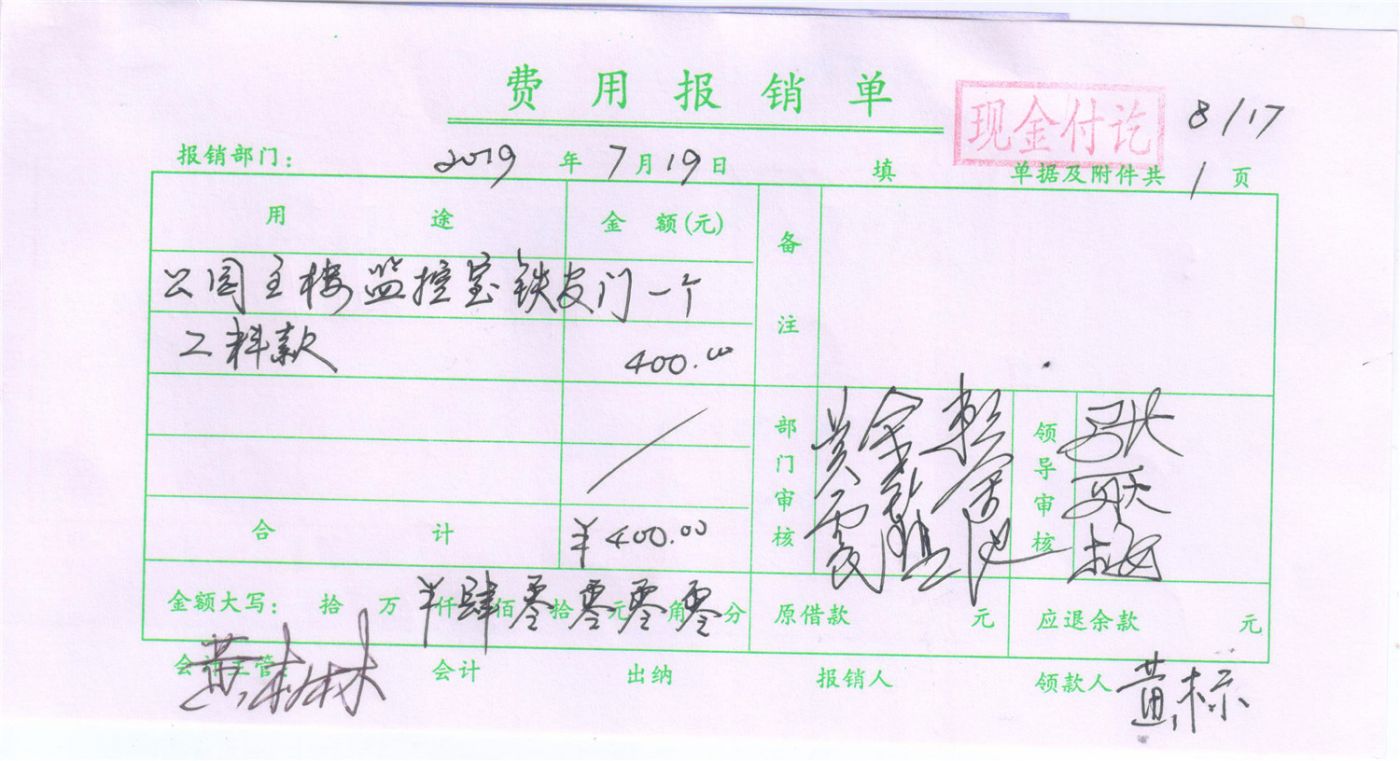 费用报销单
现金付讫
8/17
报销部门： 2019 年 7 月 19 日 填 单据及附件共 1 页
用途 金额(元) 备注
公园主楼监控室铁皮门一个
工料款 400.00
部门审核 领导审核
合计 ¥400.00
金额大写： 拾 万 ¥ 仟 肆 佰 零 拾 零 元 零 角 零 分 原借款 元 应退余款 元
会计主管 会计 出纳 报销人 领款人 黄标